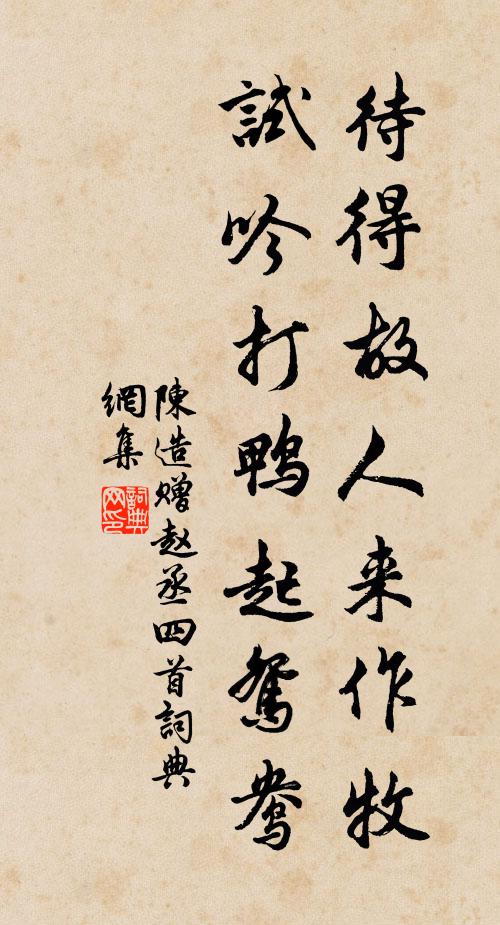 待得故人来作牧
試吟打鴨起鴛鴦
陳造贈赵丞四首詞典
網集
詞典
网印